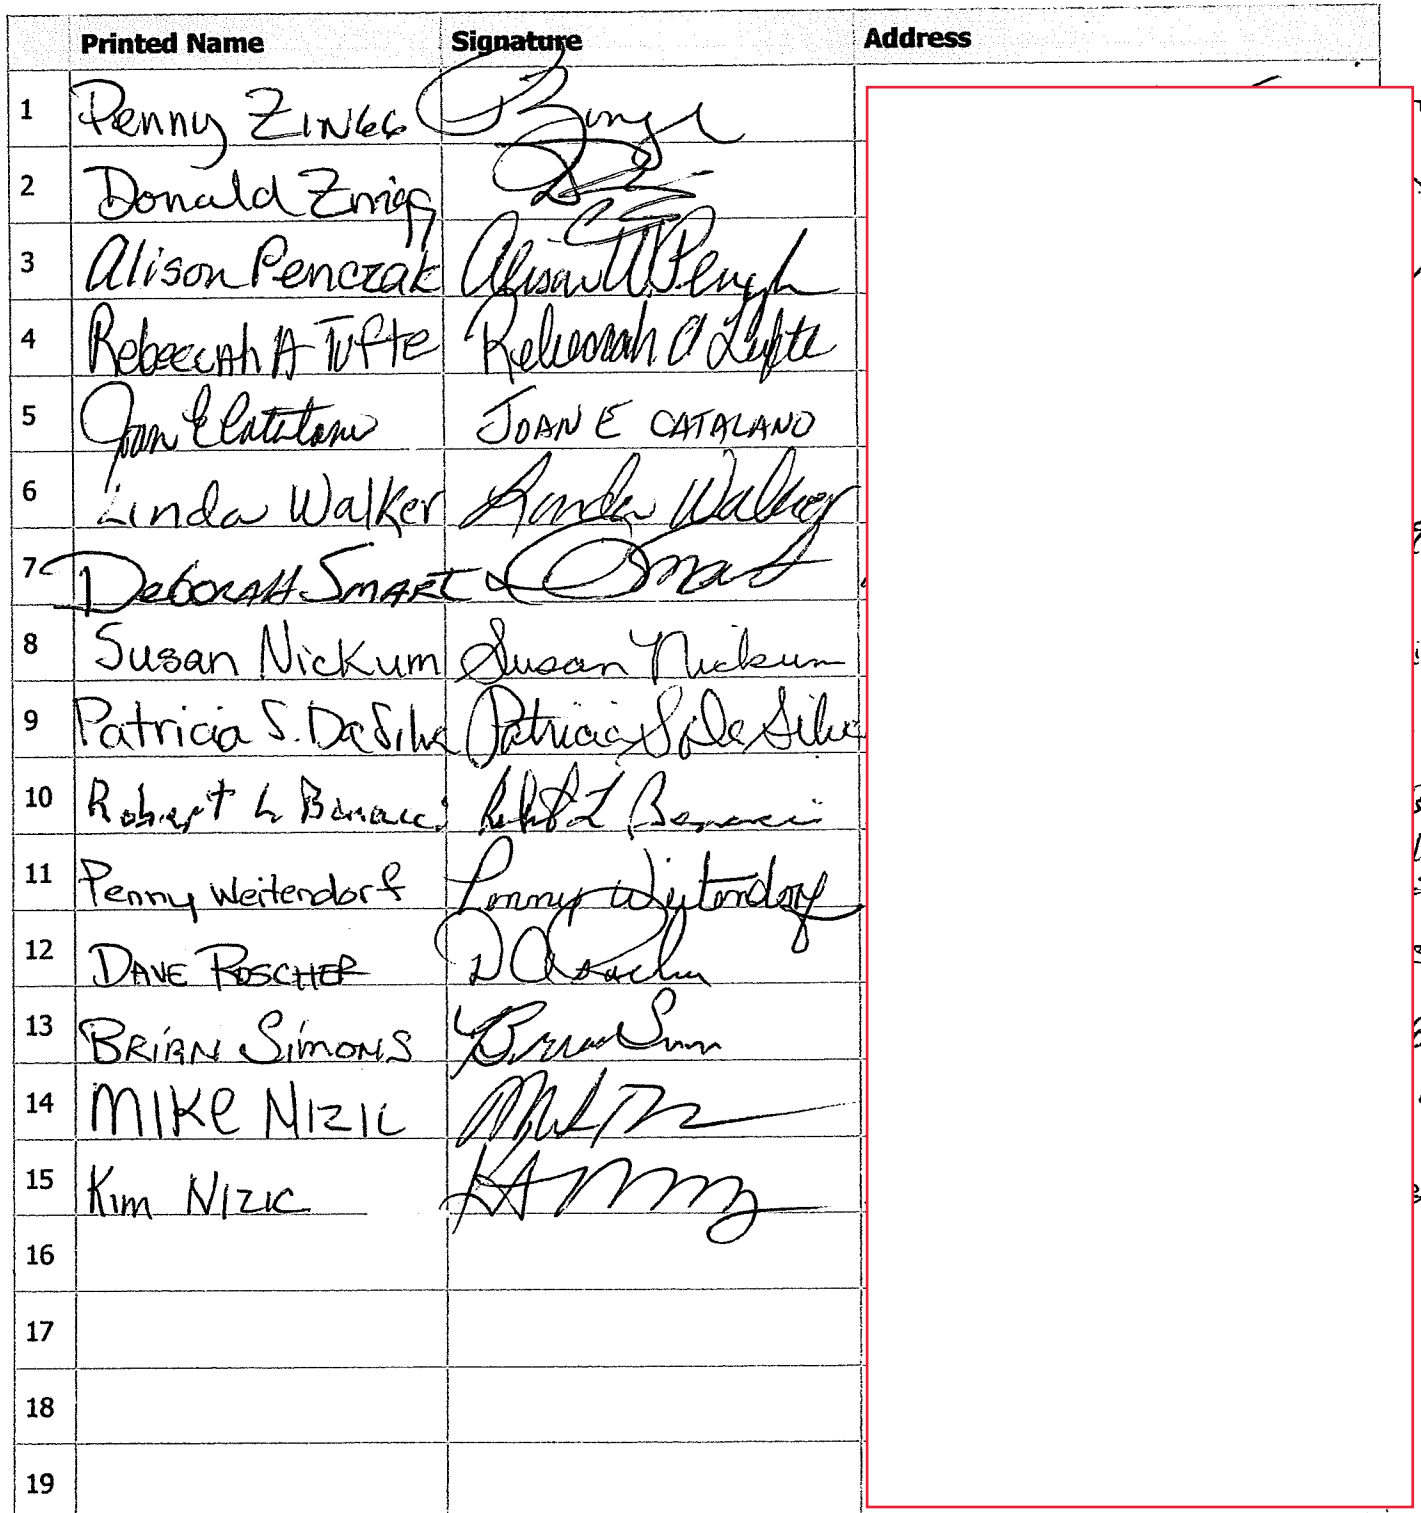 Printed Name Signature Address
1 Penny Zingg
2 Donald Zingg
3 Alison Penczak
4 Rebeccah A Tufte Rebeccah A Tufte
5 Joan E Catalano JOAN E CATALANO
6 Linda Walker Linda Walker
7 Deborah Smart Smart
8 Susan Nickum Susan Nickum
9 Patricia S. DaSilva Patricia S. DaSilva
10 Robert L Robert L
11 Penny Weitendorf Penny Weitendorf
12 DAVE ROSCHER
13 BRIAN SIMONS
14 MIKE NIZIC
15 Kim NIZIC
16
17
18
19